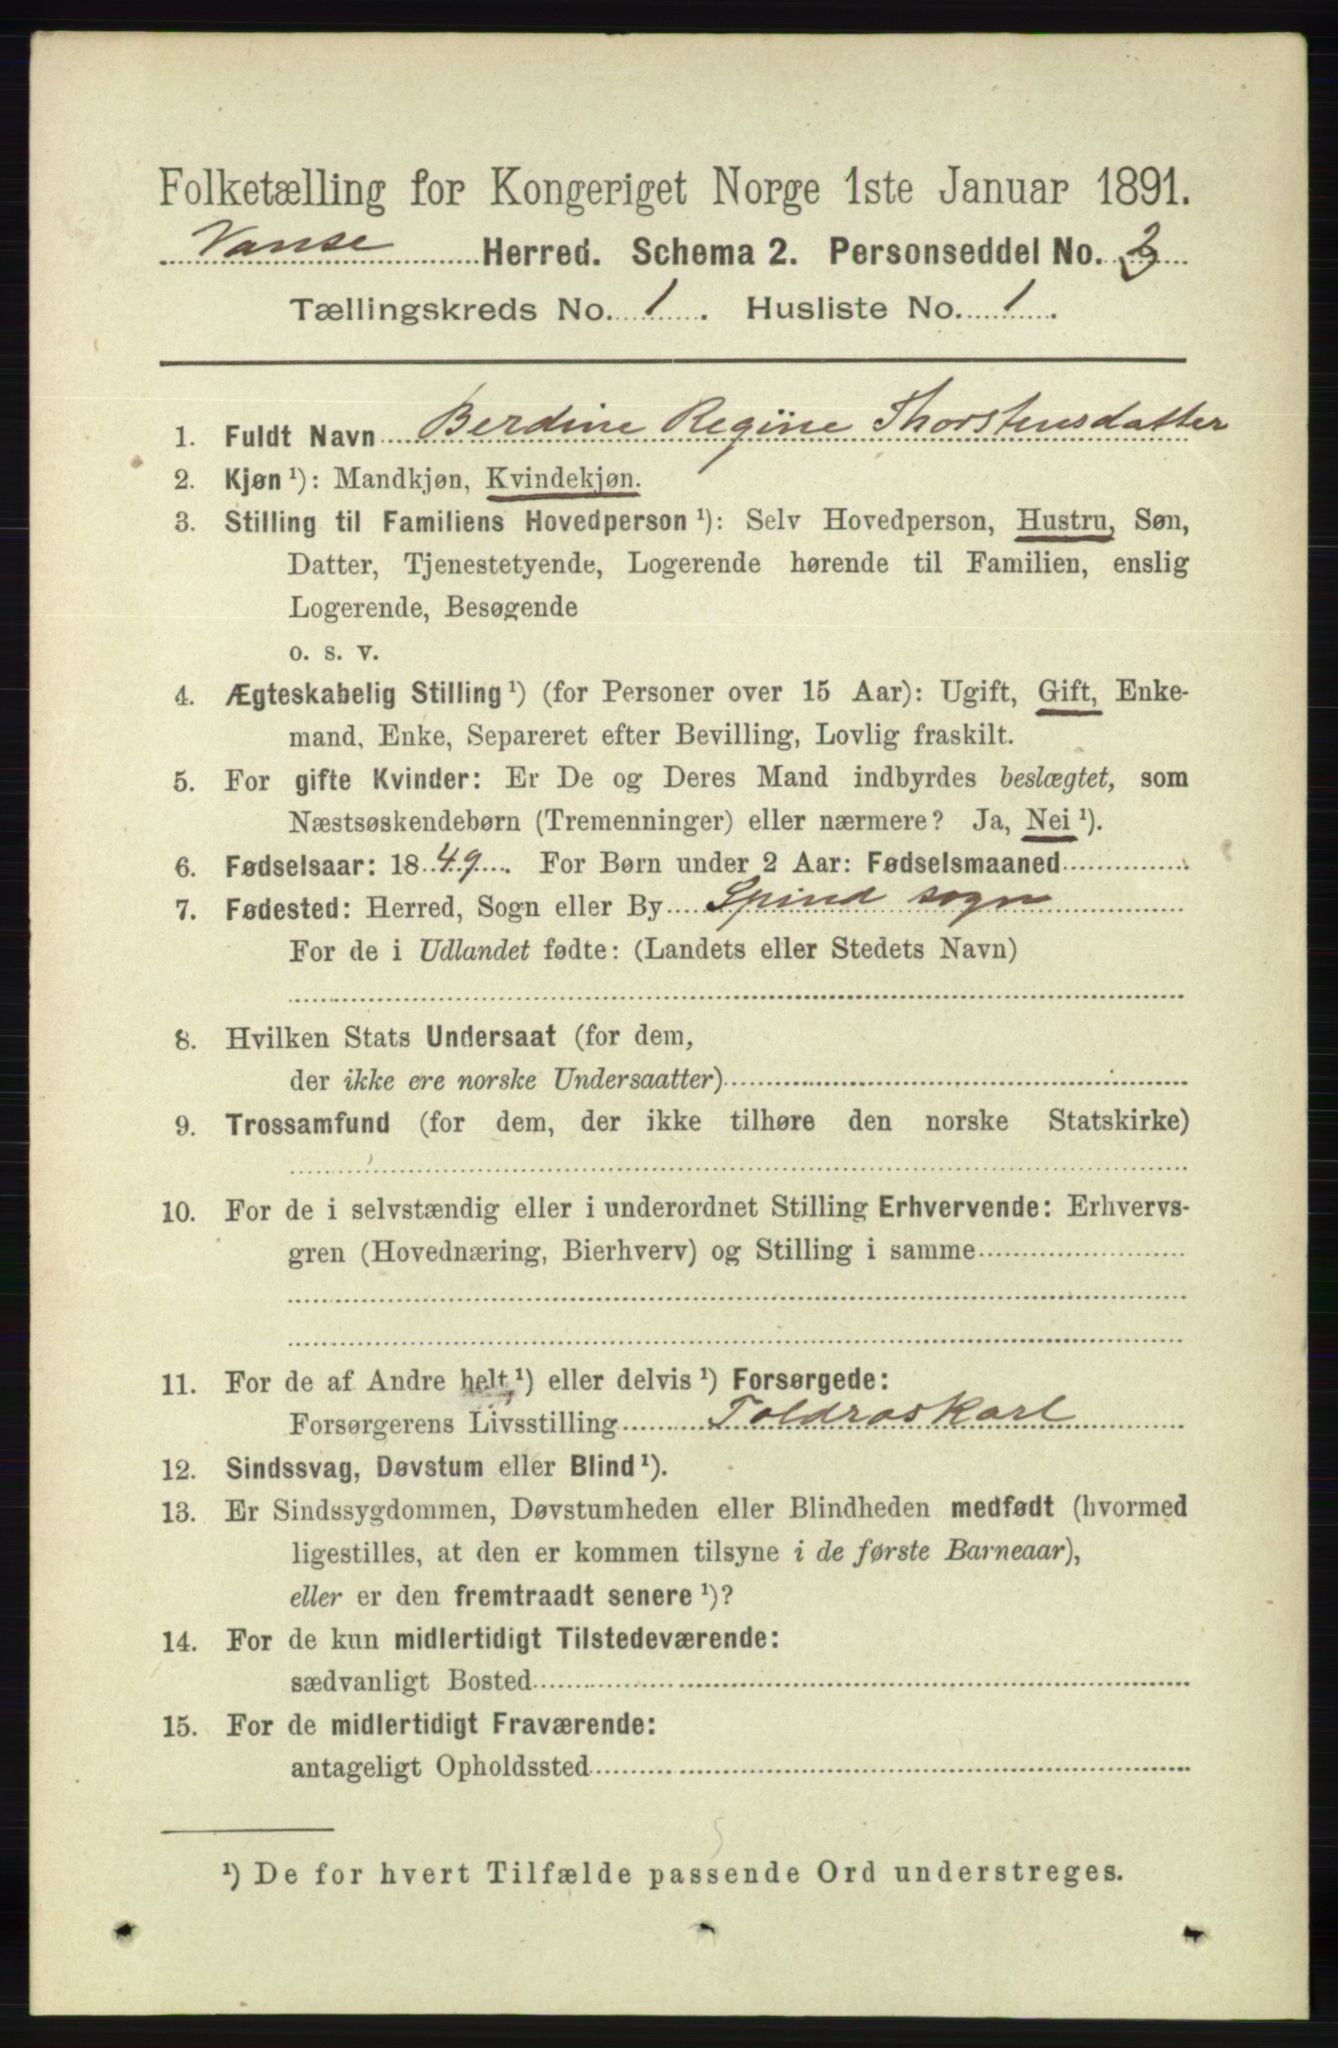 Folketælling for Kongeriget Norge 1ste Januar 1891.
Vanse Herred. Schema 2. Personseddel No. 2
Tællingskreds No. 1. Husliste No. 1.
1. Fuldt Navn Berdine Regine Thorstensdatter
2. Kjøn ¹): Mandkjøn, Kvindekjøn.
3. Stilling til Familiens Hovedperson ¹): Selv Hovedperson, Hustru, Søn,
Datter, Tjenestetyende, Logerende hørende til Familien, enslig
Logerende, Besøgende
o. s. v.
4. Ægteskabelig Stilling ¹) (for Personer over 15 Aar): Ugift, Gift, Enke-
mand, Enke, Separeret efter Bevilling, Lovlig fraskilt.
5. For gifte Kvinder: Er De og Deres Mand indbyrdes beslægtet, som
Næstsøskendebørn (Tremenninger) eller nærmere? Ja, Nei ¹).
6. Fødselsaar: 1849. For Børn under 2 Aar: Fødselsmaaned
7. Fødested: Herred, Sogn eller By Spind sogn
For de i Udlandet fødte: (Landets eller Stedets Navn)
8. Hvilken Stats Undersaat (for dem,
der ikke ere norske Undersaatter)
9. Trossamfund (for dem, der ikke tilhøre den norske Statskirke)
10. For de i selvstændig eller i underordnet Stilling Erhvervende: Erhvervs-
gren (Hovednæring, Bierhverv) og Stilling i samme
11. For de af Andre helt ¹) eller delvis ¹) Forsørgede:
Forsørgerens Livsstilling Toldroskarl
12. Sindssvag, Døvstum eller Blind ¹).
13. Er Sindssygdommen, Døvstumheden eller Blindheden medfødt (hvormed
ligestilles, at den er kommen tilsyne i de første Barneaar),
eller er den fremtraadt senere ¹)?
14. For de kun midlertidigt Tilstedeværende:
sædvanligt Bosted
15. For de midlertidigt Fraværende:
antageligt Opholdssted
¹) De for hvert Tilfælde passende Ord understreges.